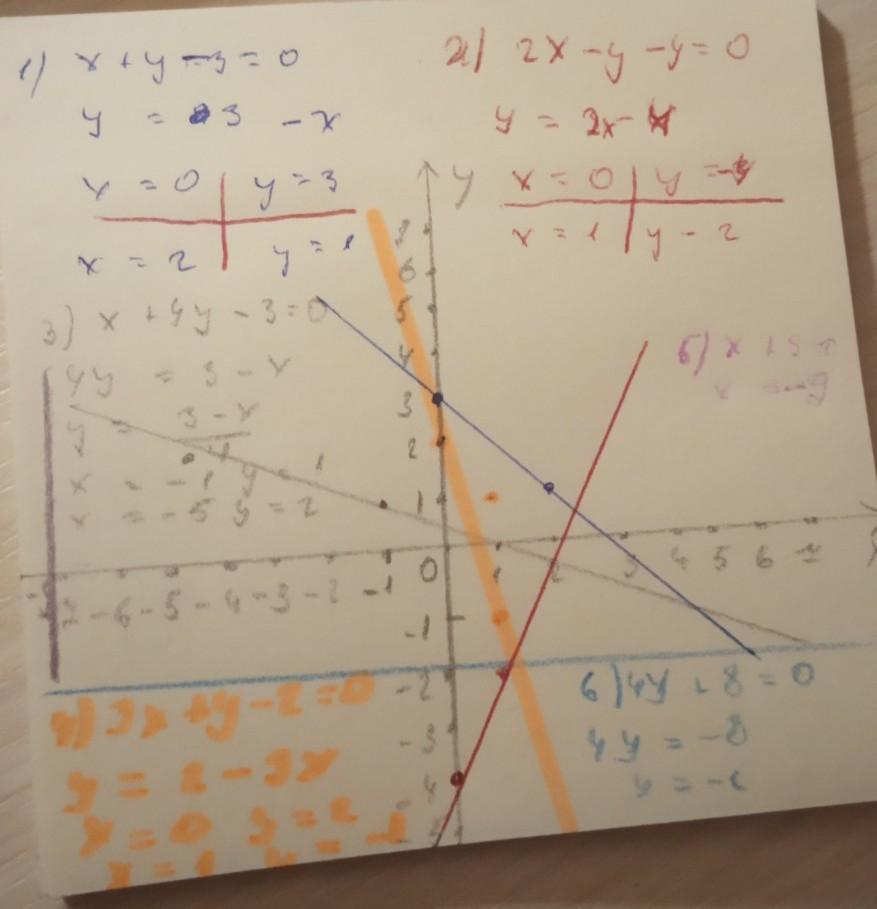 1) x + y - 3 = 0
y = 3 - x
x = 0 | y = 3
x = 2 | y = 1
2) 2x - y - y = 0
y = 2x - 4
x = 0 | y = -4
x = 1 | y - 2
3) x + 4y - 3 = 0
4y = 3 - x
y = 3 - x
4
x = -1 y = 1
x = -5 y = 2
5) x + 9 =
x = -9
y
7
6
5
4
3
2
1
0
-1
-2
-3
-4
-5
-7 -6 -5 -4 -3 -2 -1
1 2 3 4 5 6 7
4) 3x + y - 2 = 0
y = 2 - 3x
x = 0 y = 2
x = 1 y = -1
6) 4y + 8 = 0
4y = -8
y = -2